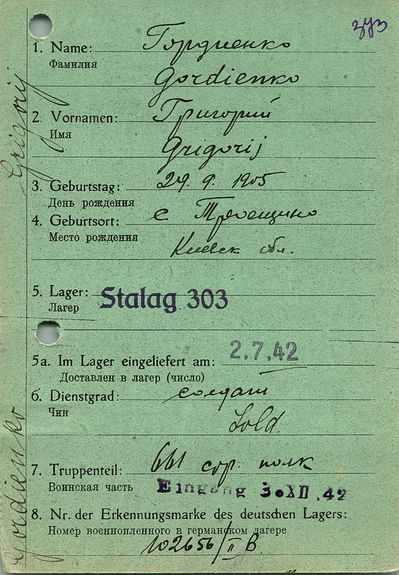 373
1. Name: Гордиенко
Фамилия
Gordienko
2. Vornamen: Григорий
Имя
Grigorij
3. Geburtstag: 29. 9. 1905
День рождения
4. Geburtsort: с Требещино
Место рождения
Киевск обл.
5. Lager: Stalag 303
Лагер
5a. Im Lager eingeliefert am: 2.7.42
Доставлен в лагер (число)
6. Dienstgrad: солдат
Чин
Sold.
7. Truppenteil: 661 полк
Воинская часть Eingang 3.XII.42
8. Nr. der Erkennungsmarke des deutschen Lagers:
Номер военнопленного в германском лагере
102656/II B
Gordienko Grigorij